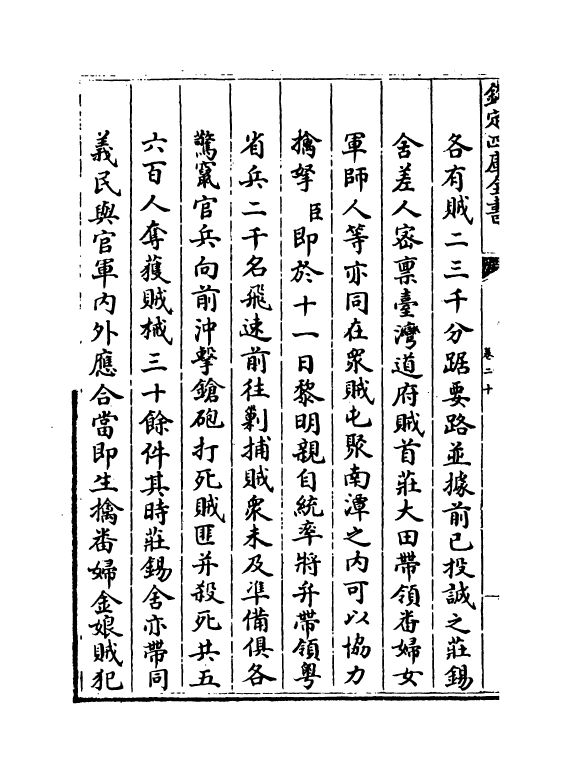 欽定四庫全書
卷二十
各有賊二三千分踞要路並據前已投誠之莊錫
舍差人密禀臺灣道府賊首莊大田帶領番婦女
軍師人等亦同在衆賊屯聚南潭之内可以協力
擒拏臣即於十一日黎明親自統率將弁帶領粤
省兵二千名飛速前往剿捕賊衆未及準備俱各
驚竄官兵向前沖擊鎗砲打死賊匪并殺死共五
六百人奪獲賊械三十餘件其時莊錫舍亦帶同
義民與官軍内外應合當即生擒番婦金娘賊犯